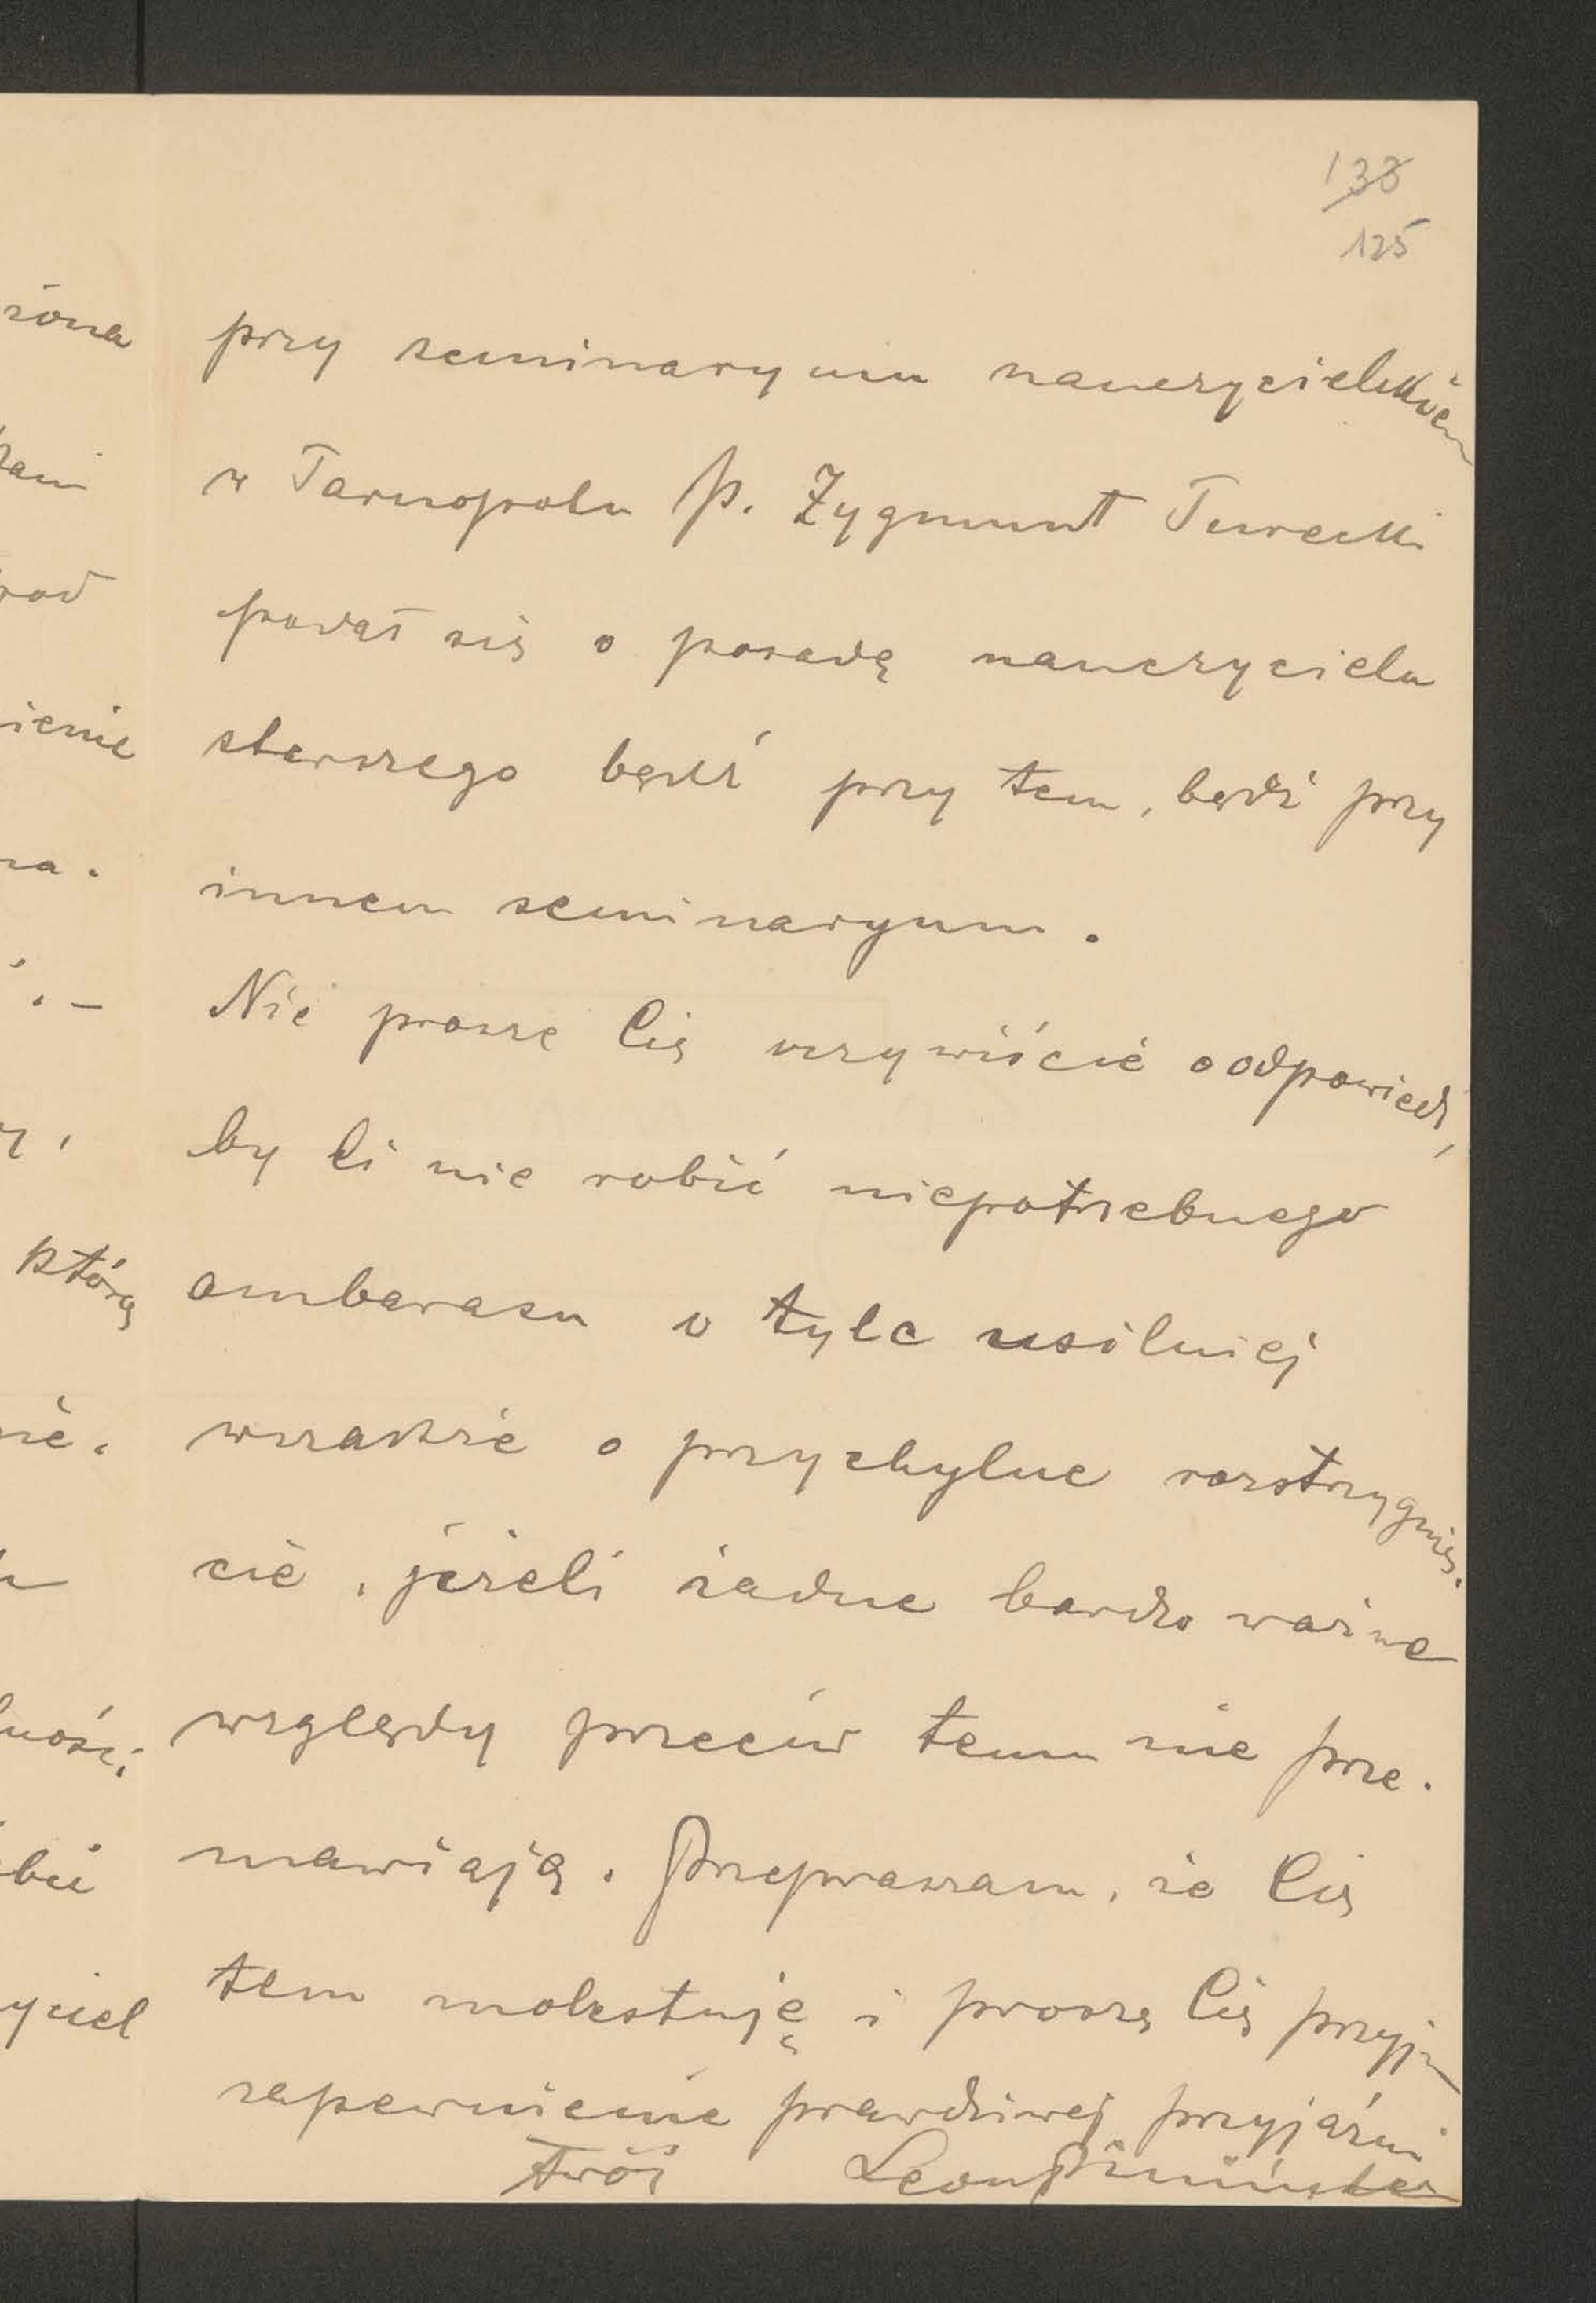 138
125
żona
przy seminaryum nauczycielskiem
w Tarnopolu p. Zygmunt Turecki
podał się o posadę nauczyciela
ienie
starszego bądź przy tem, bądź przy
innem seminaryum.
Nie proszę Cię wrzywiście o odpowiedź,
by Ci nie robić niepotrzebnego
którą
ambarasu o tyle usilniej
nie.
wszakże o przychylne rozstrzygnię-
cie, jeżeli żadne bardzo ważne
względy przeciw temu nie prze-
mawiają. Przepraszam, że Cię
yciel
tem molestuję i proszę Cię przyjm
zapewnienie prawdziwej przyjaźni
Twój Leon Piniński